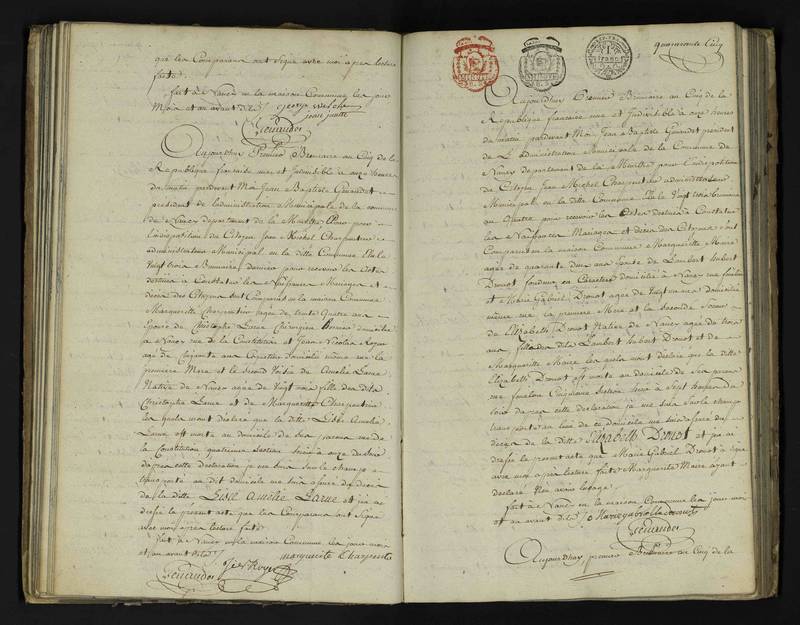 que les Comparans ont Signé avec moi après lecture
faite.
fait à Nancy en la maison Commune les jour
Mois et an avant dits
George
Jean
Genaudet
Aujourdhuy Premier Brumaire an Cinq de la
République française une et Indivisible à onze heures
du matin pardevant Moi Jean Baptiste Genaudet
président de Ladministration Municipale de la commune
de Nancy département de la Meurthe pour
Lindisposition du Citoyen Jean Michel Charpentier
administrateur Municipal en la ditte Commune Elu le
Vingt trois Brumaire dernier pour recevoir les actes
destinés à Constater les Naissances Mariages et
décès des Citoyens sont Comparus en la maison Commune
Marguerite Charpentier agée de trente quatre ans
Epouse de Christophe Larue Chirurgien domicilié
à Nancy rue de la Constitution et Jean Nicolas Royer
agé de Cinquante ans domicilié même rue la
première Mere et le second Voisin de Amelie Larue
Native de Nancy agée de Vingt mois fille des dits
Christophe Larue et de Marguerite Charpentier
les quels mont déclaré que la ditte Lise Amelie
Larue est morte au domicile de ses parens rue de
la Constitution quatrieme Section hier à onze du Soir
dapres cette declaration je me suis Sur le champ
transporté au dit domicile me suis assuré du décès
de la ditte Lise Amélie Larue et j'ai
dressé le present acte que les Comparans ont Signé
avec moi après lecture faite
fait à Nancy en la maison Commune les jour mois
et an avant dits
marguerite Charpentier
Royer
Genaudet
quarante Cinq
Aujourdhuy Premier Brumaire an Cinq de la
République française une et Indivisible à onze heures
du matin pardevant Moi Jean Baptiste Genaudet président
de L'administration Municipale de la Commune de
Nancy département de la Meurthe pour Lindisposition
du Citoyen Jean Michel Charpentier administrateur
Municipal en la ditte Commune Elu le Vingt trois Brumaire
an Quatre pour recevoir les actes destinés à Constater
les Naissances Mariages et décès des Citoyens sont
Comparus en la maison Commune Marguerite Maire
agée de quarante ans Epouse de Lambert hubert
Drouot fondeur en Caractere domicilié à Nancy rue
et Marie Gabriel Drouot agée de Vingt ans domiciliée
même rue la premiere Mere et la seconde Soeur
de Elizabeth Drouot Native de Nancy agée de trois
ans fille des dits Lambert hubert Drouot et de
Marguerite Maire les quels mont déclaré que la ditte
Elizabeth Drouot est morte au domicile de ses pere
rue Cinquieme Section hier à Sept heures du
Soir dapres cette declaration je me suis Sur le champ
transporté au lieu de ce domicile me suis assuré du
décès de la ditte Elizabeth Drouot et jai
dressé le present acte que Marie Gabriel Drouot a Signé
avec moi après lecture faite Marguerite Maire ayant
déclaré
fait à Nancy en la maison Commune les jour mois
et an avant dits
Marie gabriel
Genaudet
Aujourdhuy premier Brumaire an Cinq de la